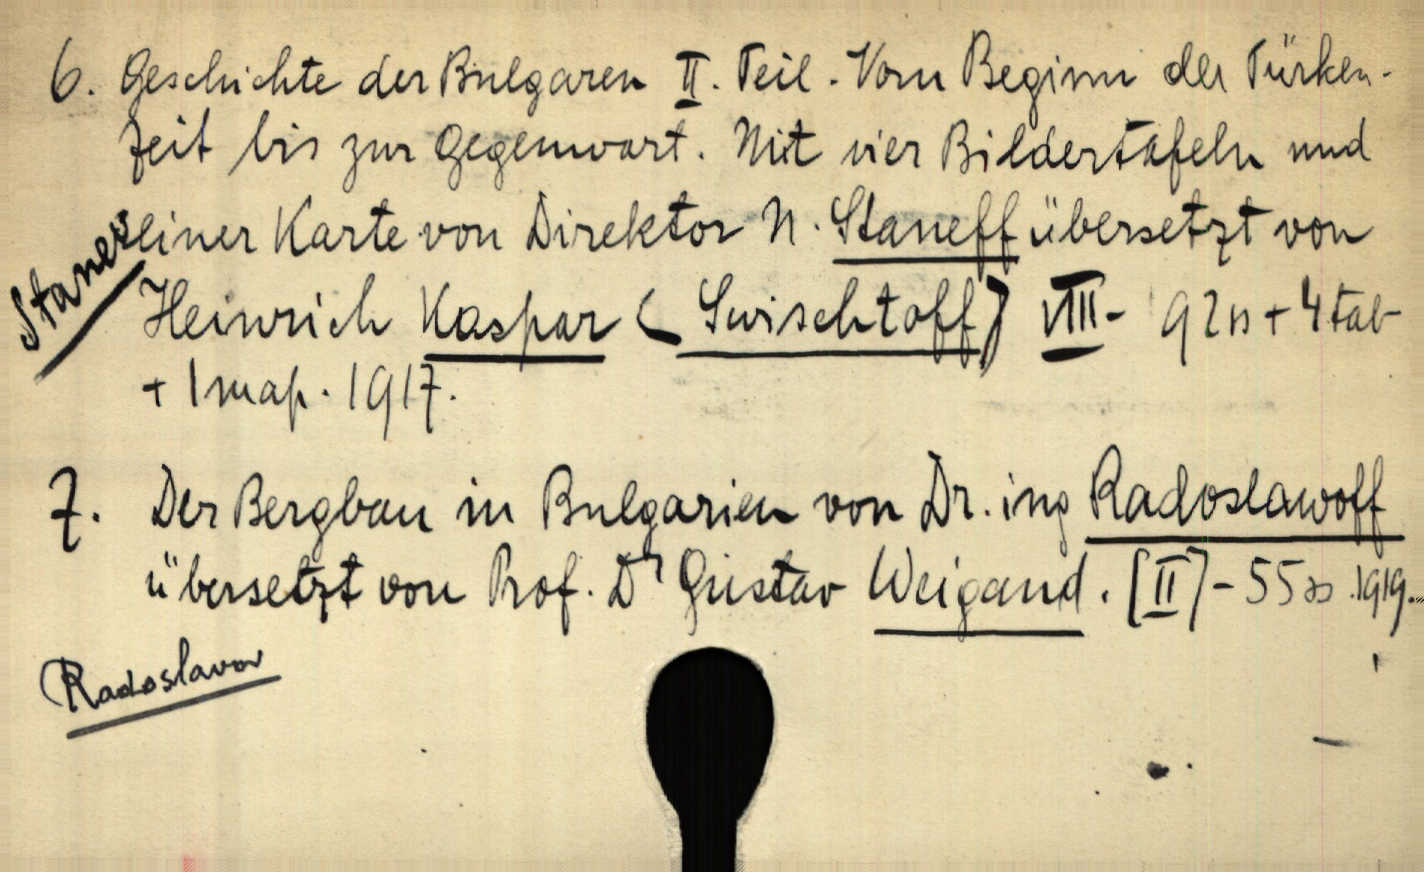 6. Geschichte der Bulgaren II. Teil. Vom Beginn der Türken-
zeit bis zur Gegenwart. Mit vier Bildertafeln und
einer Karte von Direktor N. Staneff übersetzt von
Stanev
Heinrich Kaspar (Swischtoff) VIII - 92 ss + 4 tab
+ 1 map. 1917.
7. Der Bergbau in Bulgarien von Dr. ing Radoslawoff
übersetzt von Prof. Dr Gustav Weigand. [II] - 55 ss. 1919...
Radoslavov